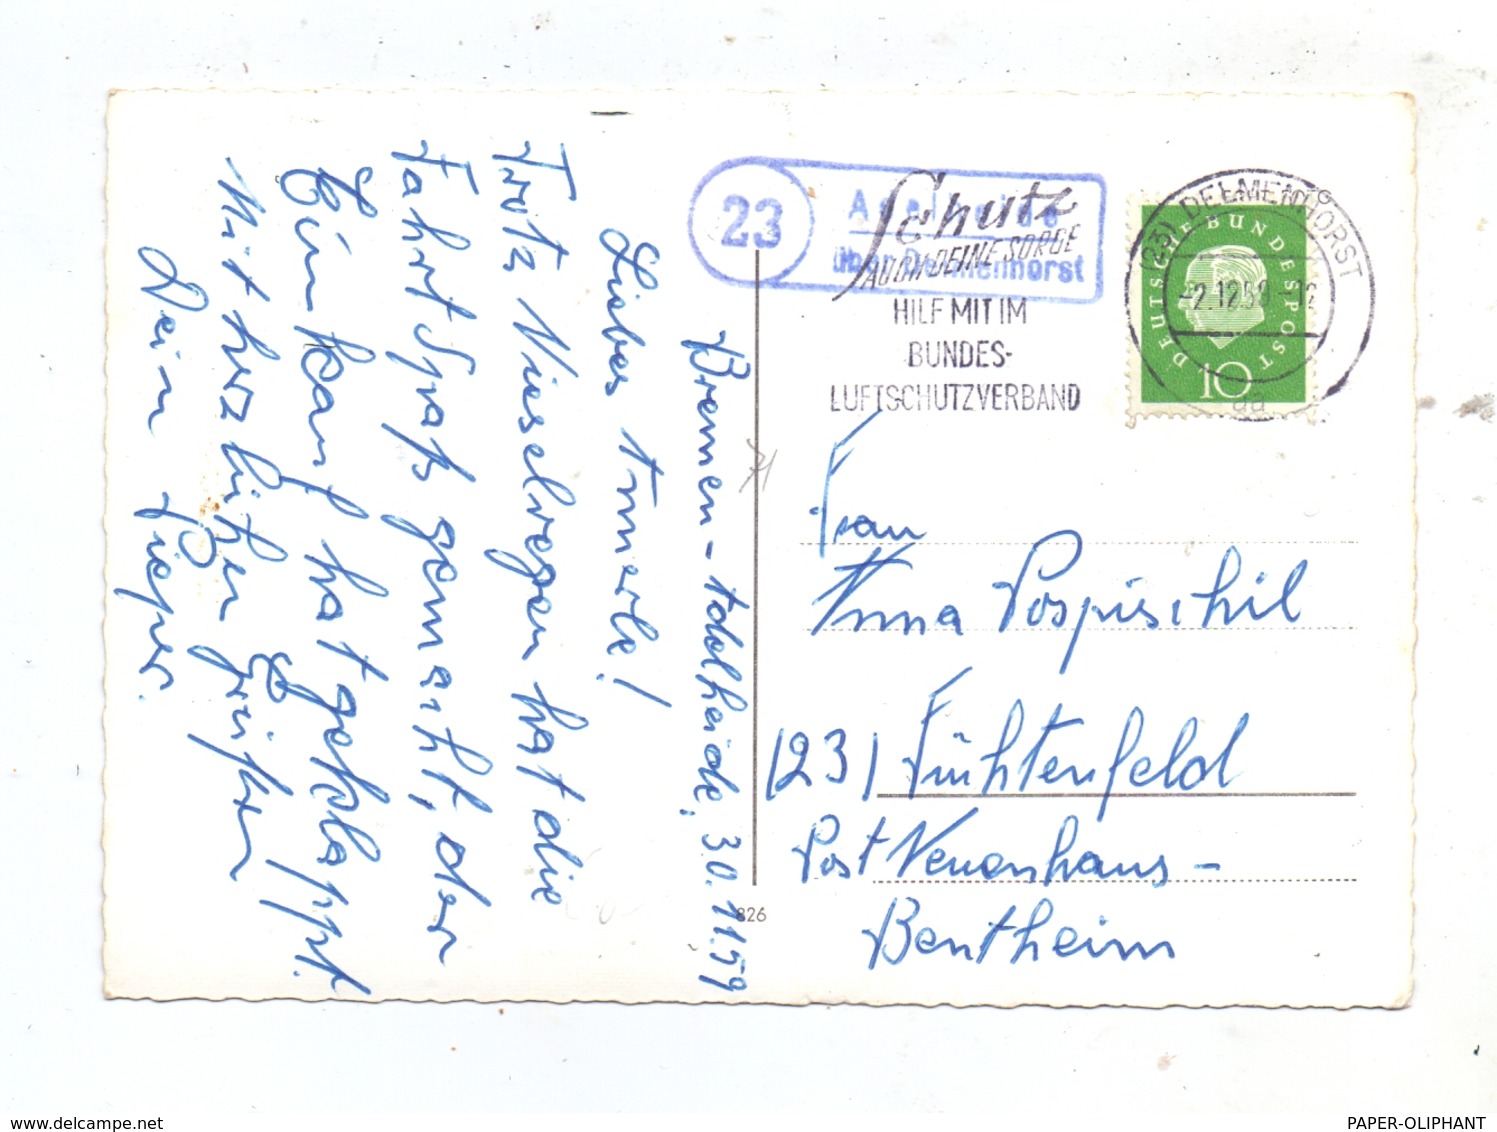 Bremen-Adelheide, 30.11.59
Liebes Annerle!
Trotz Nieselregen hat die
Fahrt Spaß gemacht, der
Einkauf hat geklappt.
Mit herzlichen Grüßen
Dein Pieper.
23
Adelheide
über Delmenhorst
Schutz
AUCH DEINE SORGE
HILF MIT IM
BUNDES-
LUFTSCHUTZVERBAND
(23) DELMENHORST
-2.12.59-12
aa
DEUTSCHE BUNDESPOST
10
Frau
Anna Pospischil
(23) Füchtenfeld
Post Neuenhaus-
Bentheim
826
www.delcampe.net
PAPER-OLIPHANT